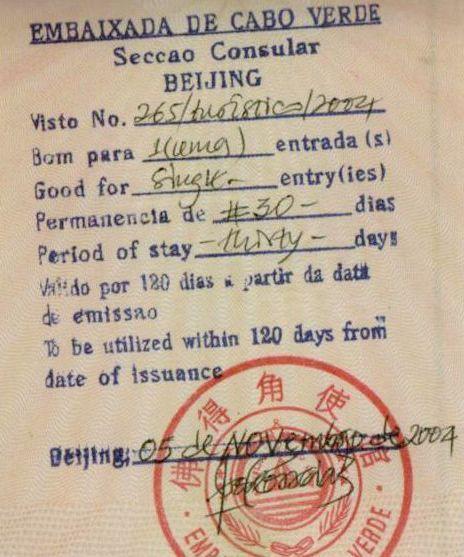 EMBAIXADA DE CABO VERDE
Seccao Consular
BEIJING
Visto No. 265/turística/2004
Bom para 1(uma) entrada(s)
Good for Single entry(ies)
Permanencia de #30- dias
Period of stay -thirty- days
Valido por 120 dias a partir da data
de emissao
To be utilized within 120 days from
date of issuance
Beijing, 05 de novembro de 2004
佛得角使馆
EMB VERDE